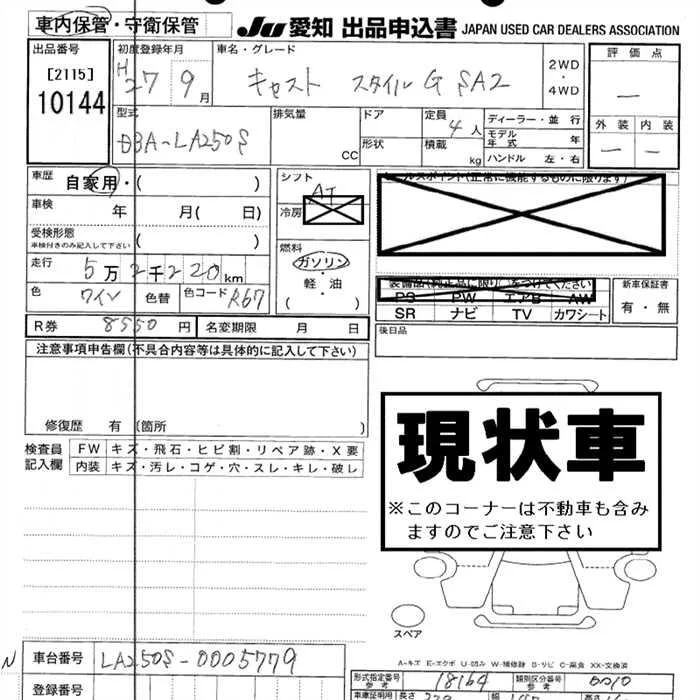 車内保管・守衛保管 JU 愛知 出品申込書 JAPAN USED CAR DEALERS ASSOCIATION
出品番号 初度登録年月 車名・グレード 評価点
[2115] H27 9月 キャスト スタイル G SA2 2WD・4WD —
10144
型式 排気量 ドア 定員 ディーラー・並行 外装 内装
DBA-LA250S CC 形状 4人 モデル年式 年 — —
積載 kg ハンドル 左・右
車歴 自家用・( ) シフト AT
車検 年 月( 日) 冷房
受検形態 ( )
車検付きのみ記入して下さい
燃料 ガソリン・軽油 ( )
走行 5万2千220km
色 ワイン 色替 色コード R67
装備品(純正品に限り○をつけてください) 新車保証書
PS PW エアB AW 有・無
SR ナビ TV カワシート
R券 8550円 名変期限 月 日
後日品
注意事項申告欄(不具合内容等は具体的に記入して下さい)
修復歴 有 (箇所 )
検査員記入欄 FW キズ・飛石・ヒビ割・リペア跡・X要
内装 キズ・汚レ・コゲ・穴・スレ・キレ・破レ
現状車
※このコーナーは不動車も含み
ますのでご注意下さい
スペア
A-キズ E-エクボ U-凹み W-補修跡 S-サビ C-腐食 XX-交換済
N 車台番号 LA250S-0005779
形式指定番号 参考 18164 類別区分番号 参考 0010
登録番号